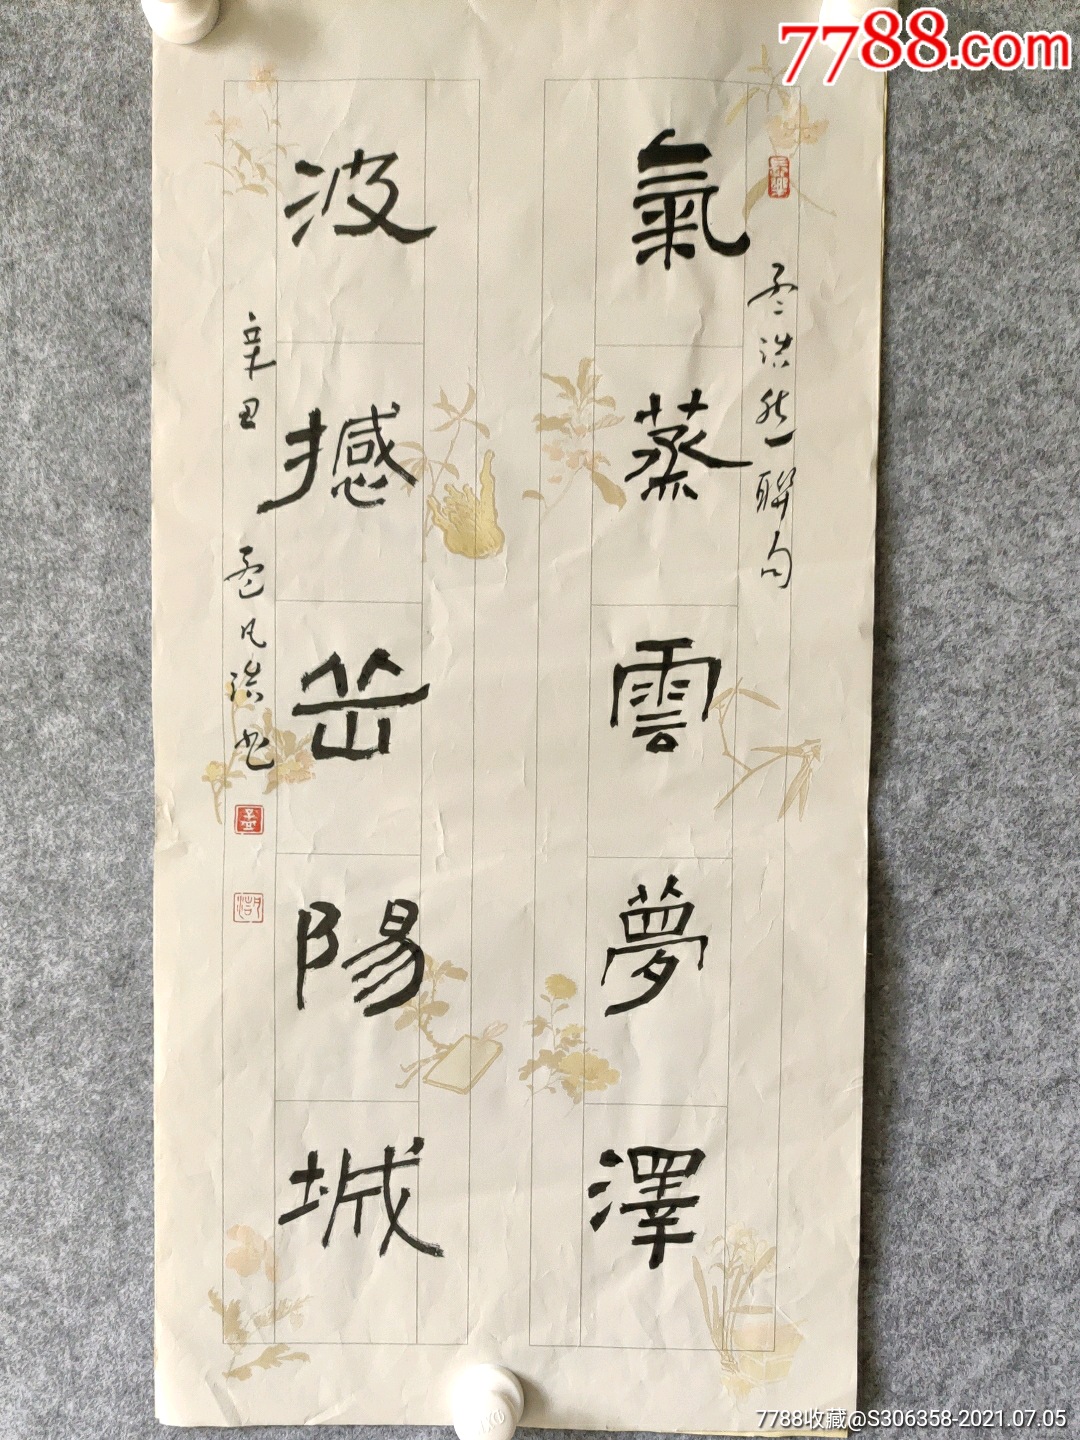 7788.com
孟浩然一联句
氣蒸雲夢澤
波撼岳陽城
辛丑 孟凡浩书
7788收藏@S306358-2021.07.05